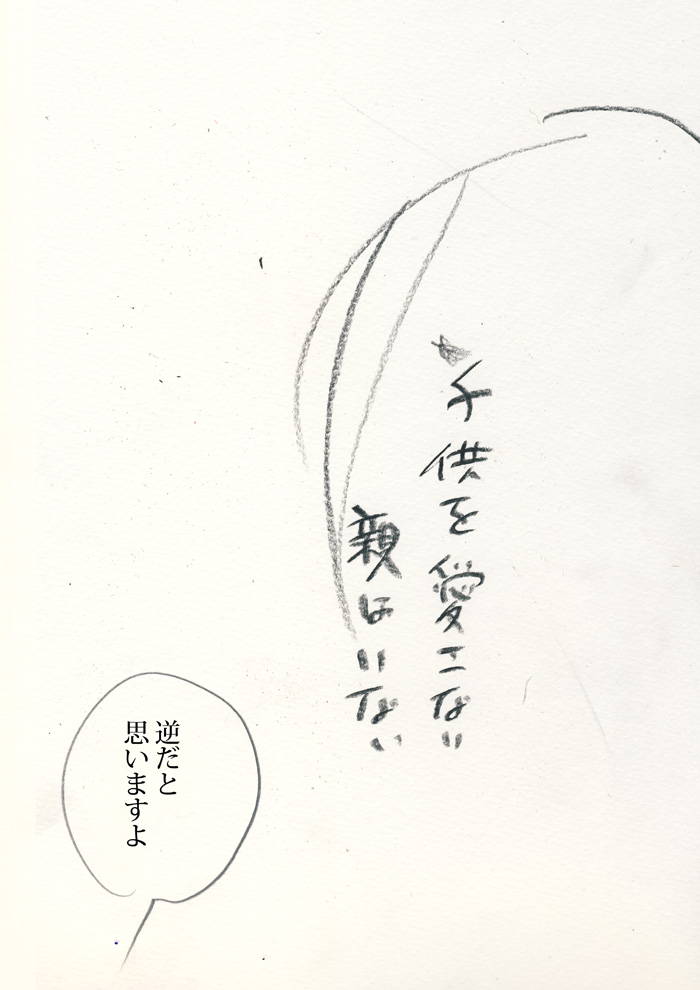 子供を愛さない
親はいない
逆だと
思いますよ